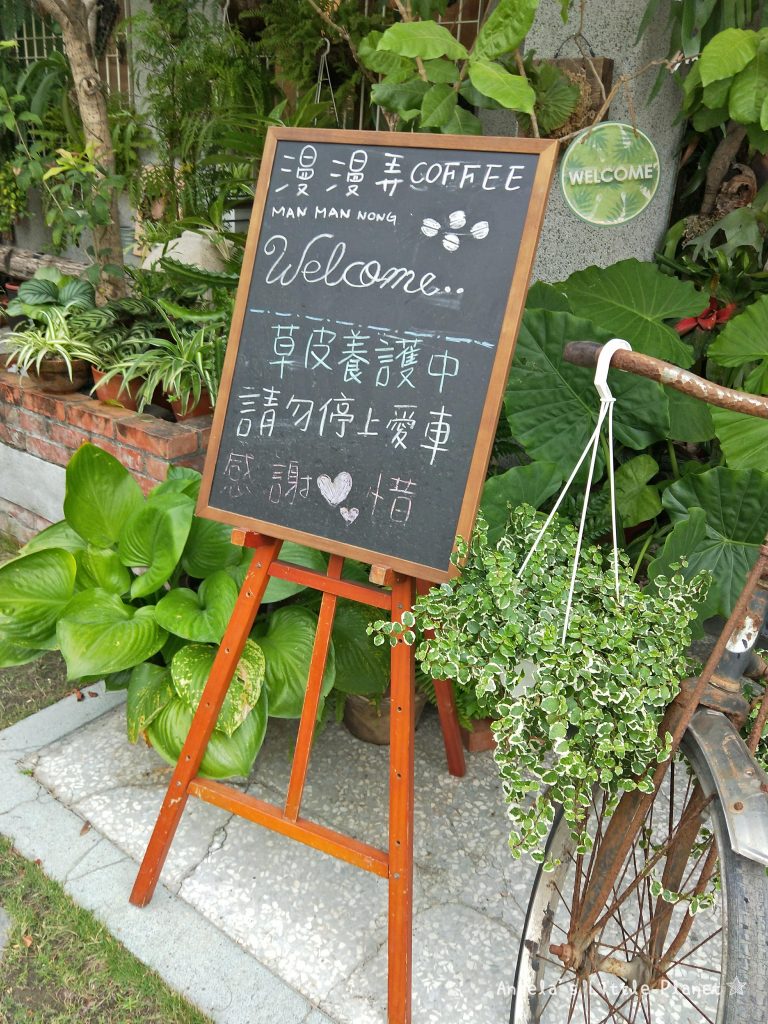 漫漫弄COFFEE
MAN MAN NONG
Welcome..
草皮養護中
請勿停上愛車
感謝惜
WELCOME
Angela's Little Planet ☆